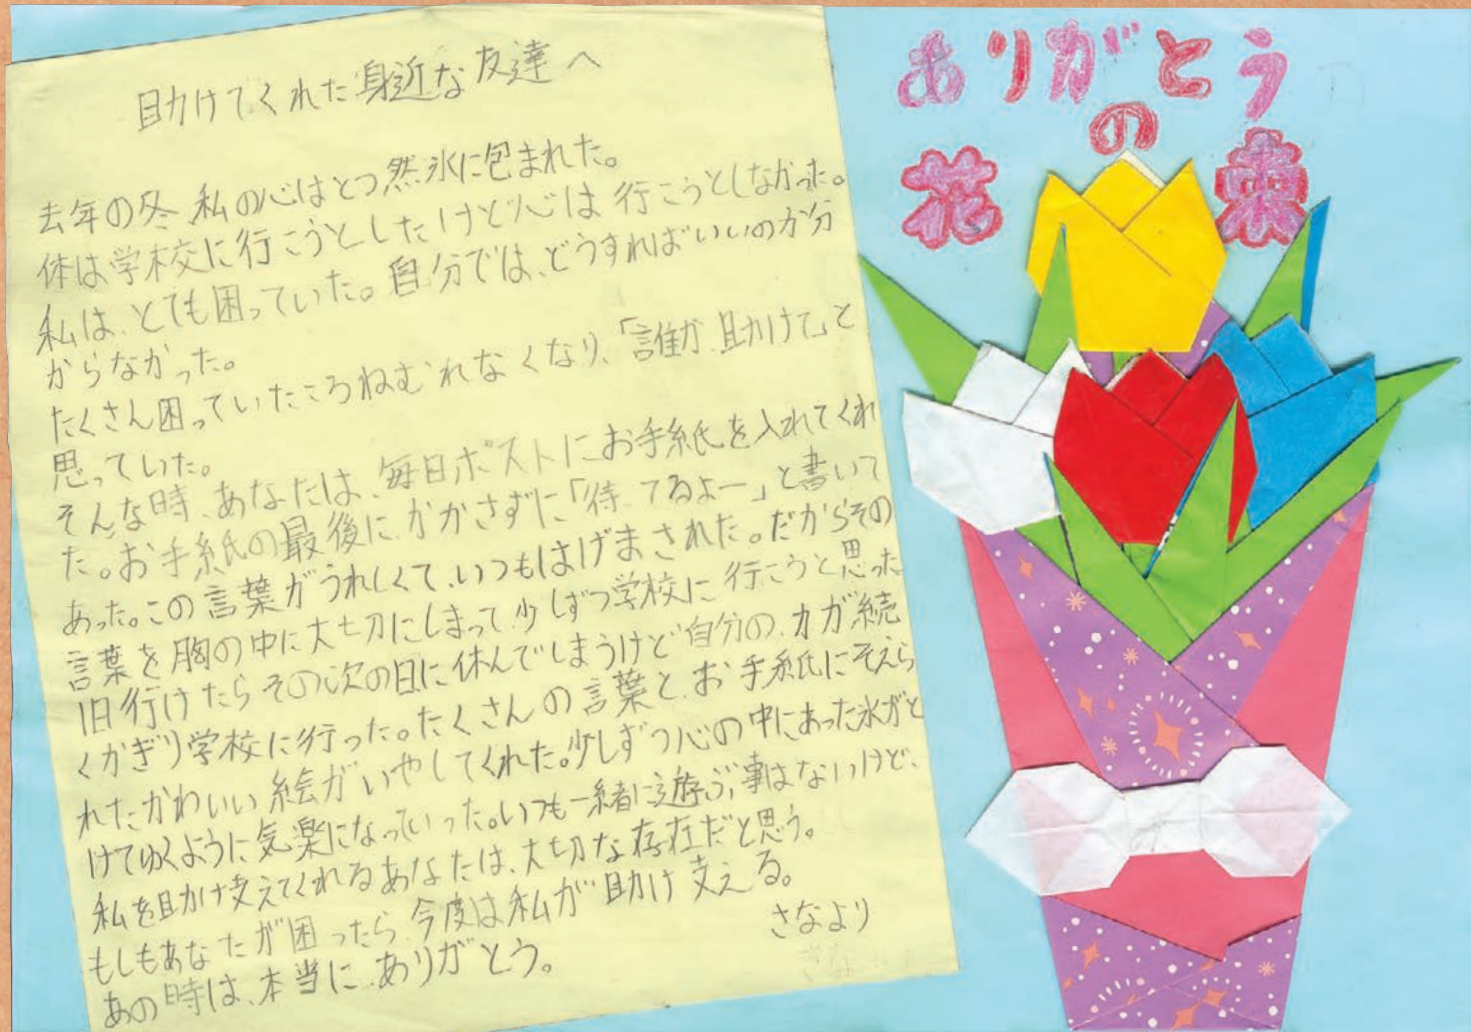 助けてくれた身近な友達へ
去年の冬、私の心はとつ然氷に包まれた。
体は学校に行こうとしたけど心は行こうとしなかった。
私は、とても困っていた。自分では、どうすればいいのか分
からなかった。
たくさん困っていたころねむれなくなり、「誰か、助けて」と
思っていた。
そんな時、あなたは、毎日ポストにお手紙を入れてくれ
た。お手紙の最後に、かかさずに「待ってるよー」と書いて
あった。この言葉がうれしくて、いつもはげまされた。だからその
言葉を胸の中に大切にしまって、少しずつ学校に行こうと思った
1日行けたらその次の日に休んでしまうけど自分の力が続
くかぎり学校に行った。たくさんの言葉と、お手紙にそえら
れたかわいい絵がいやしてくれた。少しずつ心の中にあった氷がと
けてゆくように気楽になっていった。いつも一緒に遊ぶ事はないけど、
私を助け支えてくれるあなたは、大切な存在だと思う。
もしもあなたが困ったら、今度は私が助け支える。
あの時は、本当に、ありがとう。
さなより
ありがとう
の
花束